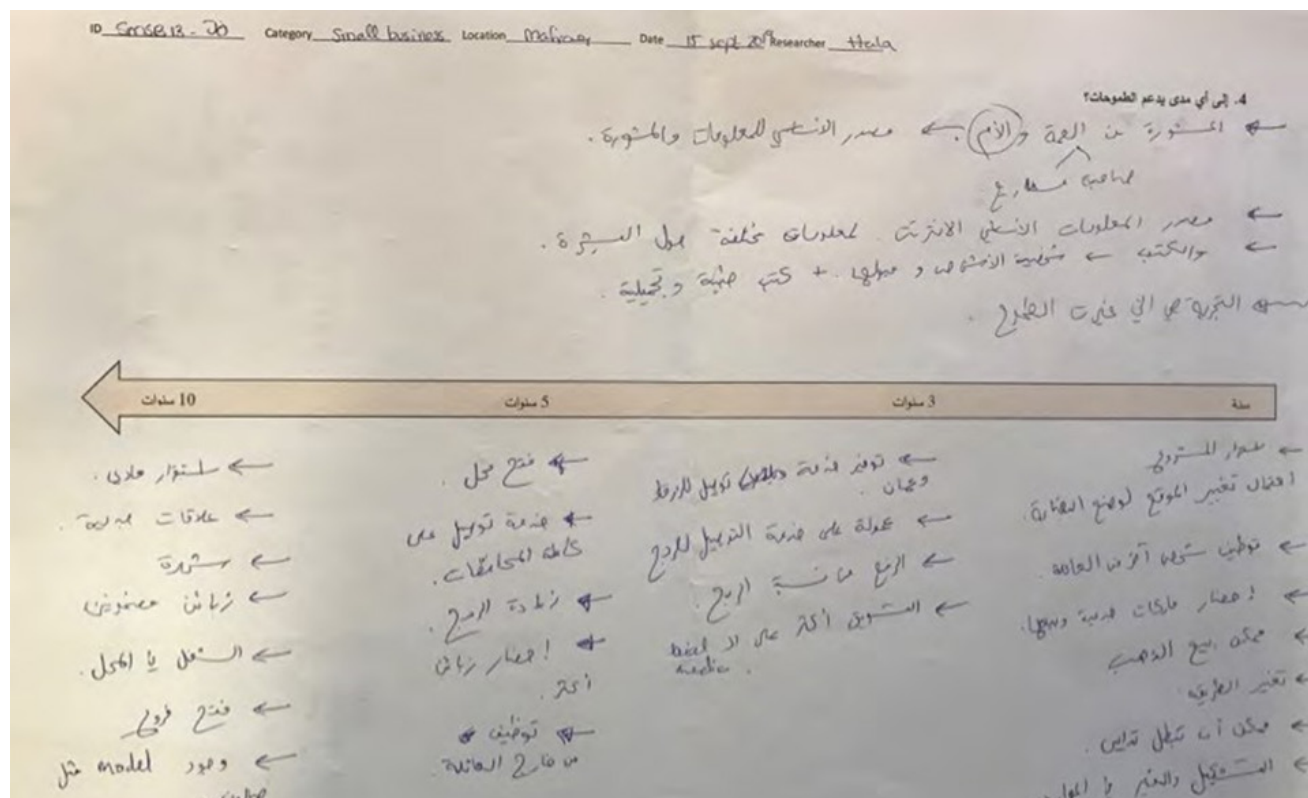 ID SmSB13-Jo Category Small business Location Date 15 sept 2019 Researcher Hala
4. إلى أي مدى يدعم الطموحات؟
← المشورة من العمة والأم ← مصدر الأساسي للمعلومات والمشورة.
صاحبة مشاريع
← مصدر المعلومات الأساسي الانترنت. لمعلومات مختلفة حول البشرة.
← والكتب ← شخصية الأشخاص و ميولها. + كتب طبية و تجميلية.
← التجربة هي التي غيرت الطموح.
سنة
3 سنوات
5 سنوات
10 سنوات
← المشروع
احتمال تغيير الموقع لوضع البضاعة.
← توظيف شخص آخر من العائلة.
← إحضار ماركات جديدة وبيعها.
← ممكن بيع الذهب
← تغير الطريقة
← ممكن أن تبطل تداين.
← و
← توفير خدمة توصيل للزرقا
وعمان.
← عمولة على خدمة التوصيل للربح
← الرفع من نسبة الربح.
← التسويق أكثر على ال
media.
← فتح محل.
← خدمة توصيل على
كافة المحافظات.
← زيادة الربح.
← إحضار زبائن
أكثر.
← توظيف
من خارج العائلة.
← استقرار مادي.
← علاقات جديدة.
← شهرة
← زبائن مضمونين
← الشغل بالمحل.
← فتح فروع
← وجود model مثل